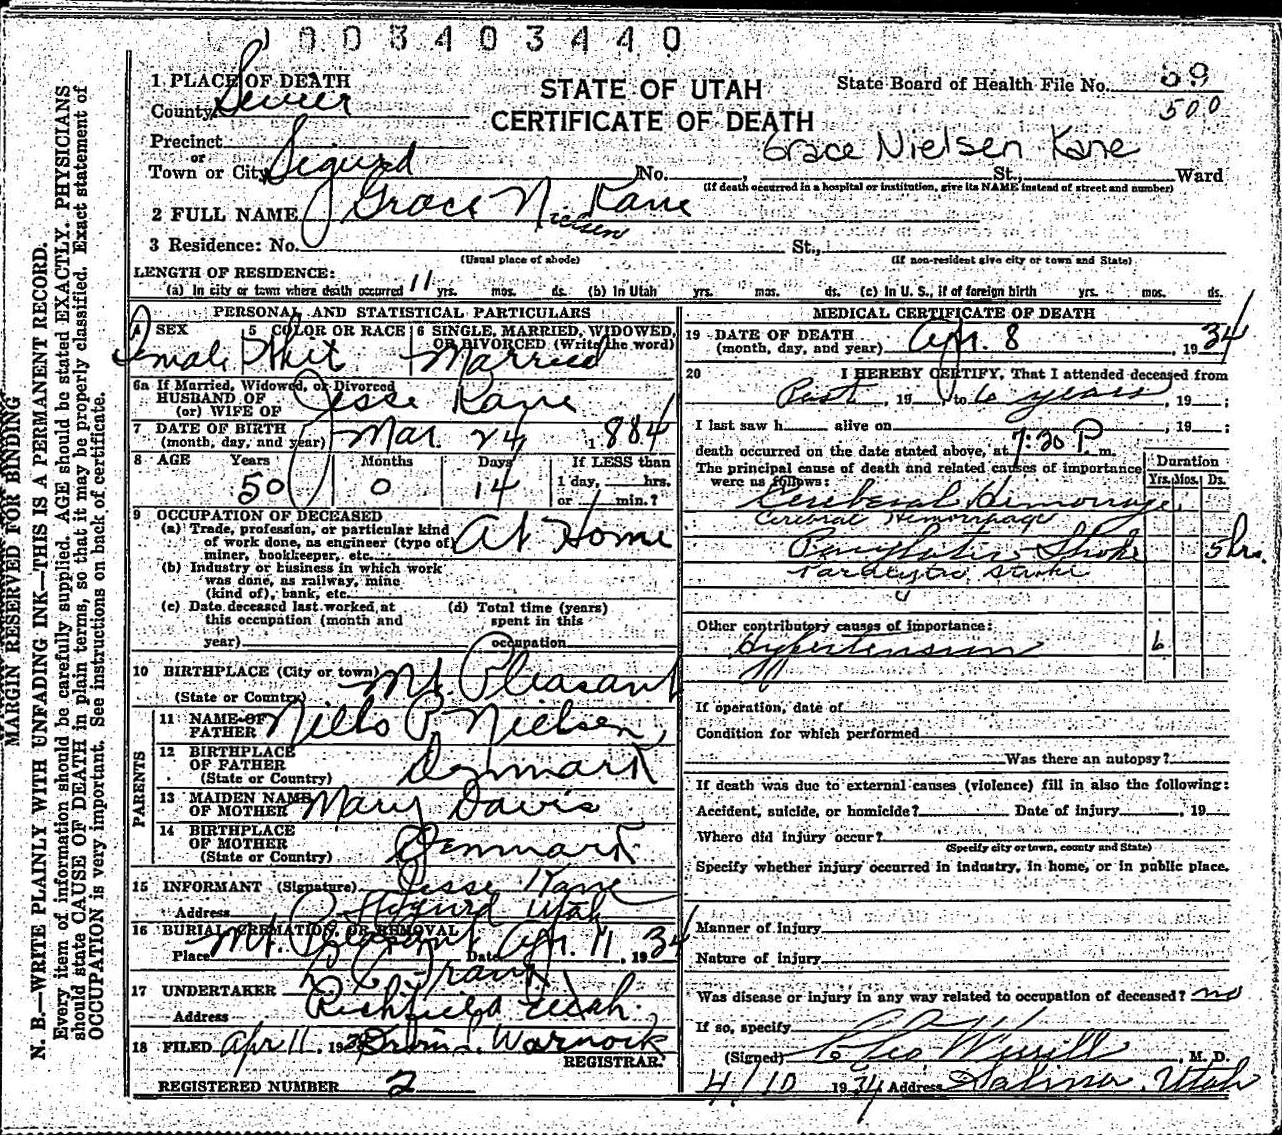 003403440
1 PLACE OF DEATH
County Sevier
STATE OF UTAH
CERTIFICATE OF DEATH
State Board of Health File No. 59
500
Precinct
or
Town or City Sigurd No. , St., Ward
Grace Nielsen Kane
(If death occurred in a hospital or institution, give its NAME instead of street and number)
2 FULL NAME Grace Nielsen Kane
3 Residence: No. St.,
(Usual place of abode) (If non-resident give city or town and State)
LENGTH OF RESIDENCE:
(a) In city or town where death occurred 11 yrs. mos. ds. (b) In Utah yrs. mos. ds. (c) In U. S., if of foreign birth yrs. mos. ds.
PERSONAL AND STATISTICAL PARTICULARS
4 SEX 5 COLOR OR RACE 6 SINGLE, MARRIED, WIDOWED, OR DIVORCED (Write the word)
Female Whit Married
6a If Married, Widowed, or Divorced
HUSBAND OF
(or) WIFE OF Jesse Kane
7 DATE OF BIRTH
(month, day, and year) Mar. 24 1884
8 AGE Years Months Days If LESS than
1 day, hrs.
or min.?
50 0 14
9 OCCUPATION OF DECEASED
(a) Trade, profession, or particular kind
of work done, as engineer (type of)
miner, bookkeeper, etc. At Home
(b) Industry or business in which work
was done, as railway, mine
(kind of), bank, etc.
(c) Date deceased last worked at
this occupation (month and
year)
(d) Total time (years)
spent in this
occupation
10 BIRTHPLACE (City or town) Mt. Pleasant
(State or Country)
PARENTS
11 NAME OF
FATHER Niels P. Nielsen
12 BIRTHPLACE
OF FATHER
(State or Country) Denmark
13 MAIDEN NAME
OF MOTHER Mary Davis
14 BIRTHPLACE
OF MOTHER
(State or Country) Denmark
15 INFORMANT (Signature) Jesse Kane
Address Sigurd Utah
16 BURIAL, CREMATION, OR REMOVAL
Place Mt. Pleasant Date Apr. 11, 1934
17 UNDERTAKER
Address Richfield Utah.
18 FILED Apr 11, 19 Warnock
REGISTRAR.
REGISTERED NUMBER 2
MEDICAL CERTIFICATE OF DEATH
19 DATE OF DEATH
(month, day, and year) Apr. 8, 1934
20 I HEREBY CERTIFY, That I attended deceased from
Past, 19 to 6 years, 19 ;
I last saw h alive on , 19 ;
death occurred on the date stated above, at 7:30 P. m.
The principal cause of death and related causes of importance
were as follows:
Duration
Yrs. Mos. Ds.
Cerebral Hemorrage
Cerebral Hemorrhage
Stroke 5 hrs.
Paralytic stroke
Other contributory causes of importance:
Hypertension 6
If operation, date of
Condition for which performed
Was there an autopsy?
If death was due to external causes (violence) fill in also the following:
Accident, suicide, or homicide? Date of injury , 19
Where did injury occur?
(Specify city or town, county and State)
Specify whether injury occurred in industry, in home, or in public place.
Manner of injury
Nature of injury
Was disease or injury in any way related to occupation of deceased? no
If so, specify
(Signed) , M. D.
4/10 1934 Address Salina, Utah
MARGIN RESERVED FOR BINDING
N. B.—WRITE PLAINLY WITH UNFADING INK—THIS IS A PERMANENT RECORD.
Every item of information should be carefully supplied. AGE should be stated EXACTLY. PHYSICIANS
should state CAUSE OF DEATH in plain terms, so that it may be properly classified. Exact statement of
OCCUPATION is very important. See instructions on back of certificate.